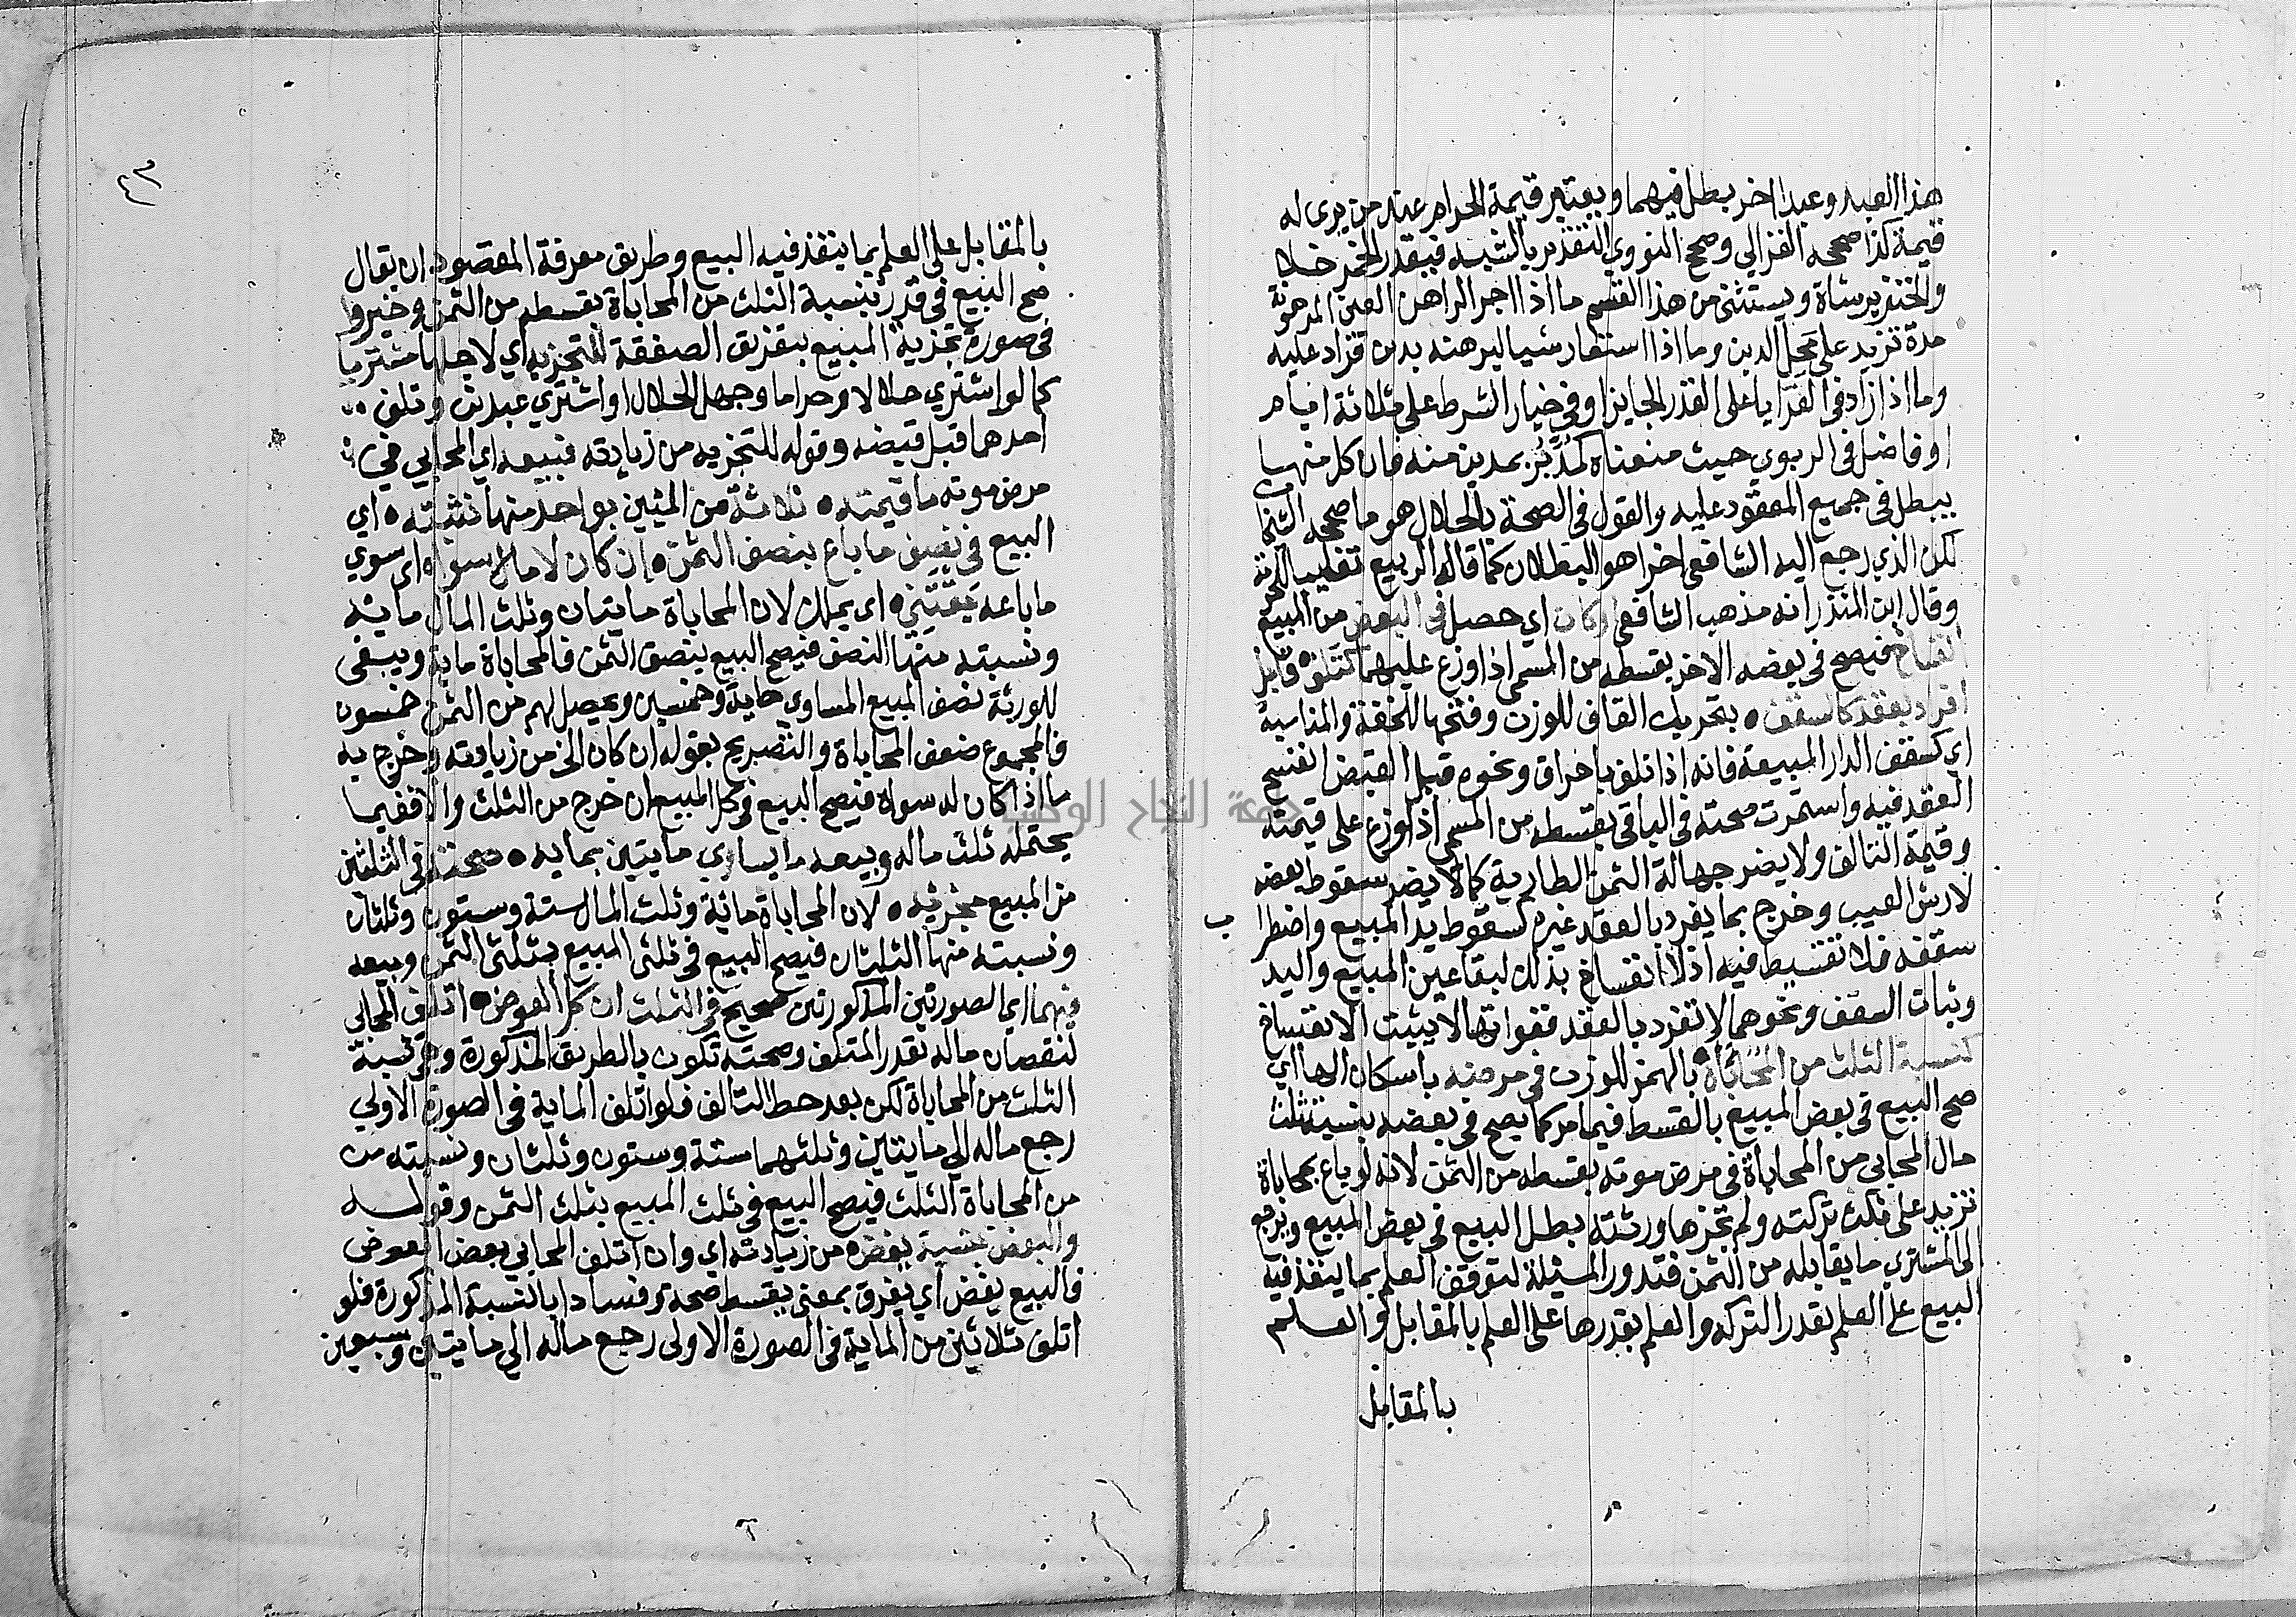 هذا العبد وعبدا اخر بطل فيهما ويعتبر قيمة الحرام عند من يرى له
قيمة كذا صححه الغزالي وصحح النووي التقدير بالشبه فيقدر الخمر خلا
والخنزير شاة ويستثنى من هذا القسم ما اذا اجر الراهن العين المرهونة
مدة تزيد على محل الدين وما اذا استعار شيا ليرهنه بدين فزاد عليه
وما اذا زاد في العرايا على القدر الجايز او في خيار الشرط على ثلاثة ايام
او فاضل في الربوي حيث منعناه كمد بر بمدين منه فان كل منها
يبطل في جميع المعقود عليه والقول في الصحة بالحلال هو ما صححه الشيخان
لكن الذي رجع اليه الشافعي اخرا هو البطلان كما قاله الربيع تغليبا للحرمة
وقال ابن المنذر انه مذهب الشافعي او كان اي حصل في البعض من المبيع
انفساخ فيصح في بعضه الاخر بقسطه من المسمى اذا وزع عليهما كتلف قابل
افراد بعقد كالسقف بتحريك القاف للوزن وفتحها للخفة والمناسبة
اي كسقف الدار المبيعة فانه اذا تلف باحراق ونحوه قبل القبض انفسخ
العقد فيه واستمرت صحته في الباقي بقسطه من المسمى اذا وزع على قيمته
وقيمة التالف ولا يضر جهالة الثمن الطارية كما لا يضر سقوط بعضه
لارش العيب وخرج بما يفرد بالعقد غيره كسقوط يد المبيع واضطراب
سقفه فلا تقسيط فيه اذ لا انفساخ بذلك لبقا عين المبيع واليد
وثبات السقف ونحوهما لا تفرد بالعقد ففواتها لا يثبت الانفساخ
كنسبة الثلث من المحاباة بالهمز للوزن في مرضه باسكان الها اي
صح البيع في بعض المبيع بالقسط فيما مر كما يصح في بعضه بنسبة ثلث
مال المحابي من المحاباة في مرض موته بقسطه من الثمن لانه لو باع بمحاباة
تزيد على ثلث تركته ولم تجزها ورثته بطل البيع في بعض المبيع ويرجع
الى المشتري ما يقابله من الثمن فتدور المسئلة لتوقف العلم بما ينفذ فيه
البيع على العلم بقدر التركه والعلم بقدرها على العلم بالمقابل والعلم
بالمقابل
٤٣
بالمقابل على العلم بما ينفذ فيه البيع وطريق معرفة المقصود ان يقال
صح البيع في قدر بنسبة الثلث من المحاباة بقسطه من الثمن وخيروا
في صورة تجزية المبيع بتفريق الصفقة للتجزيه اي لاجلها مشتريا
كما لو اشترى حلالا وحراما وجهل الحلال او اشترى عبدين وتلف
احدهما قبل قبضه وقوله للتجزيه من زيادته فبيعه اي المحابي في
مرض موته ما قيمته ثلاثة من المئين بواحد منها نثبته اي
البيع في نصف ما باع بنصف الثمن ان كان لا مال سواه اي سوى
ما باعه يقتني اي يملك لان المحاباة مايتان وثلث المال مايه
ونسبته منها النصف فيصح البيع بنصف الثمن فالمحاباة ماية ويبقى
للورثة نصف المبيع المساوي ماية وخمسين ويحصل لهم من الثمن خمسون
فالمجموع ضعف المحاباة والتصريح بقوله ان كان الخ من زيادته وخرج به
ما اذا كان له سواه فيصح البيع في كل المبيع ان خرج من الثلث والا ففيما
يحتمله ثلث ماله وبيعه ما يساوي مايتين بمايه صححته في الثلثين
من المبيع مجزئيه لان المحاباة مائة وثلث المال ستة وستون وثلثان
ونسبته منها الثلثان فيصح البيع في ثلثي المبيع بثلثي الثمن وبيعه
فيهما اي الصورتين المذكورتين صحيح في الثلث ان كل العوض اتلف المحابي
لنقصان ماله بقدر المتلف وصحته تكون بالطريق المذكورة وهي نسبة
الثلث من المحاباة لكن بعد حط التالف فلو اتلف الماية في الصورة الاولي
رجع ماله الي مايتين وثلثهما ستة وستون وثلثان ونسبته من
من المحاباة الثلث فيصح البيع في ثلث المبيع بثلث الثمن وقوله
والبعض بنسبة يفض من زيادته اي وان اتلف المحابي بعض العوض
فالبيع يفض اي يفرق بمعنى يقسط صحة وفسادا بالنسبة المذكورة فلو
اتلف ثلاثين من الماية في الصورة الاولى رجع ماله الى مايتين وسبعين
جامعة النجاح الوطنية